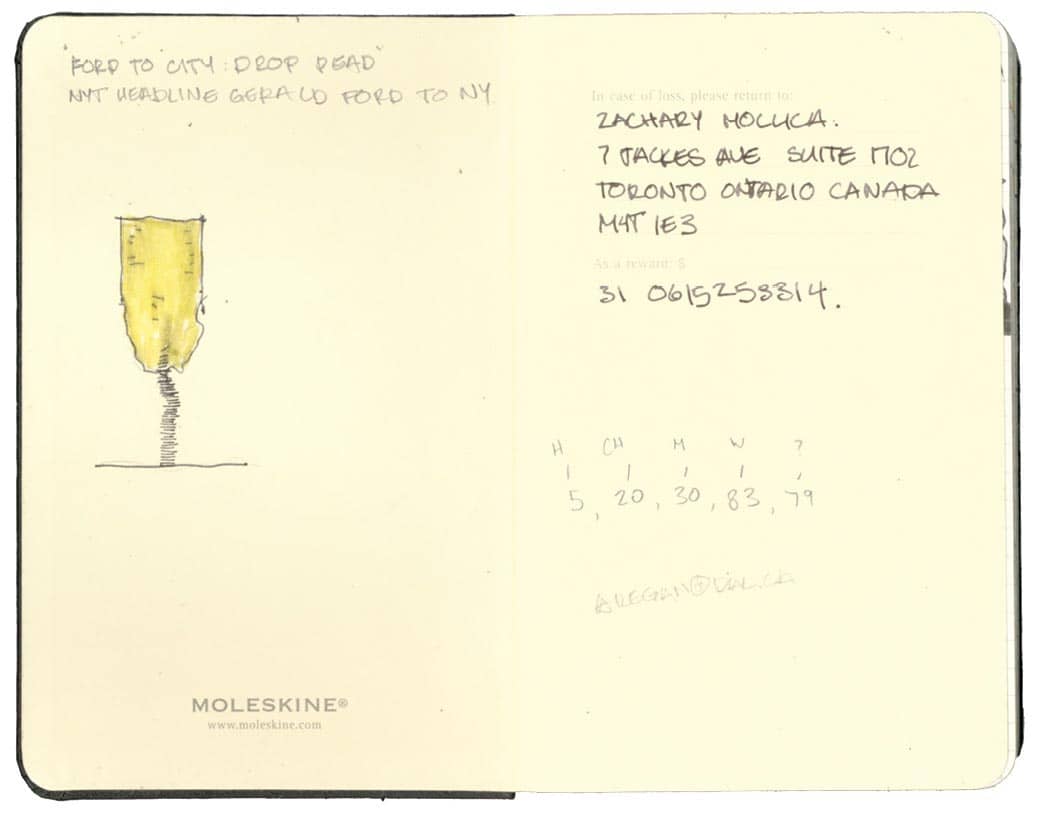 "FORD TO CITY: DROP DEAD"
NYT HEADLINE GERALD FORD TO NY
MOLESKINE®
www.moleskine.com
In case of loss, please return to:
ZACHARY MOLLICA.
7 JACKES AVE SUITE 1702
TORONTO ONTARIO CANADA
M4T 1E3
As a reward: $
31 0615258314.
H CH M W ?
5, 20, 30, 83, 79